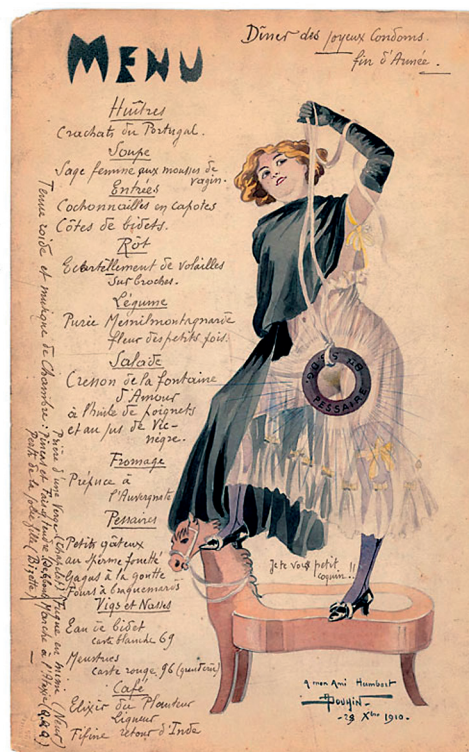 MENU
Dîner des joyeux Condoms.
fin d'Année.
Huîtres
Crachats du Portugal.
Soupe
Sage femme aux mousses de
vagin.
Entrées
Cochonnailles en capotes
Côtes de bidets.
Rôt
Ecartèllement de volailles
sur broches.
Légume
Purée Mesnilmontagnarde
fleur des petits pois.
Salade
Cresson de la fontaine
d'Amour
à l'huile de poignets
et au jus de Vie-
nègre.
Fromage
Préfuce à
l'Auvergnate
Pessaires
Petits gâteux
au sperme fouetté
à la goutte
Fours à braquemards
Vigs et Nasses
Eau de bidet
carte blanche 69
Menstrues
carte rouge 96
Café
Elixir du Planteur
Liqueur
Fifine retour d'Inde
Tenue roide et musique de Chambre :
Prière d'une Vierge
Petits de la jolie fille (Bizette)
DOG. PESSAIRE
Je te vois petit
coquin !!
A mon Ami Humbert
- 28 Xbre 1910. -